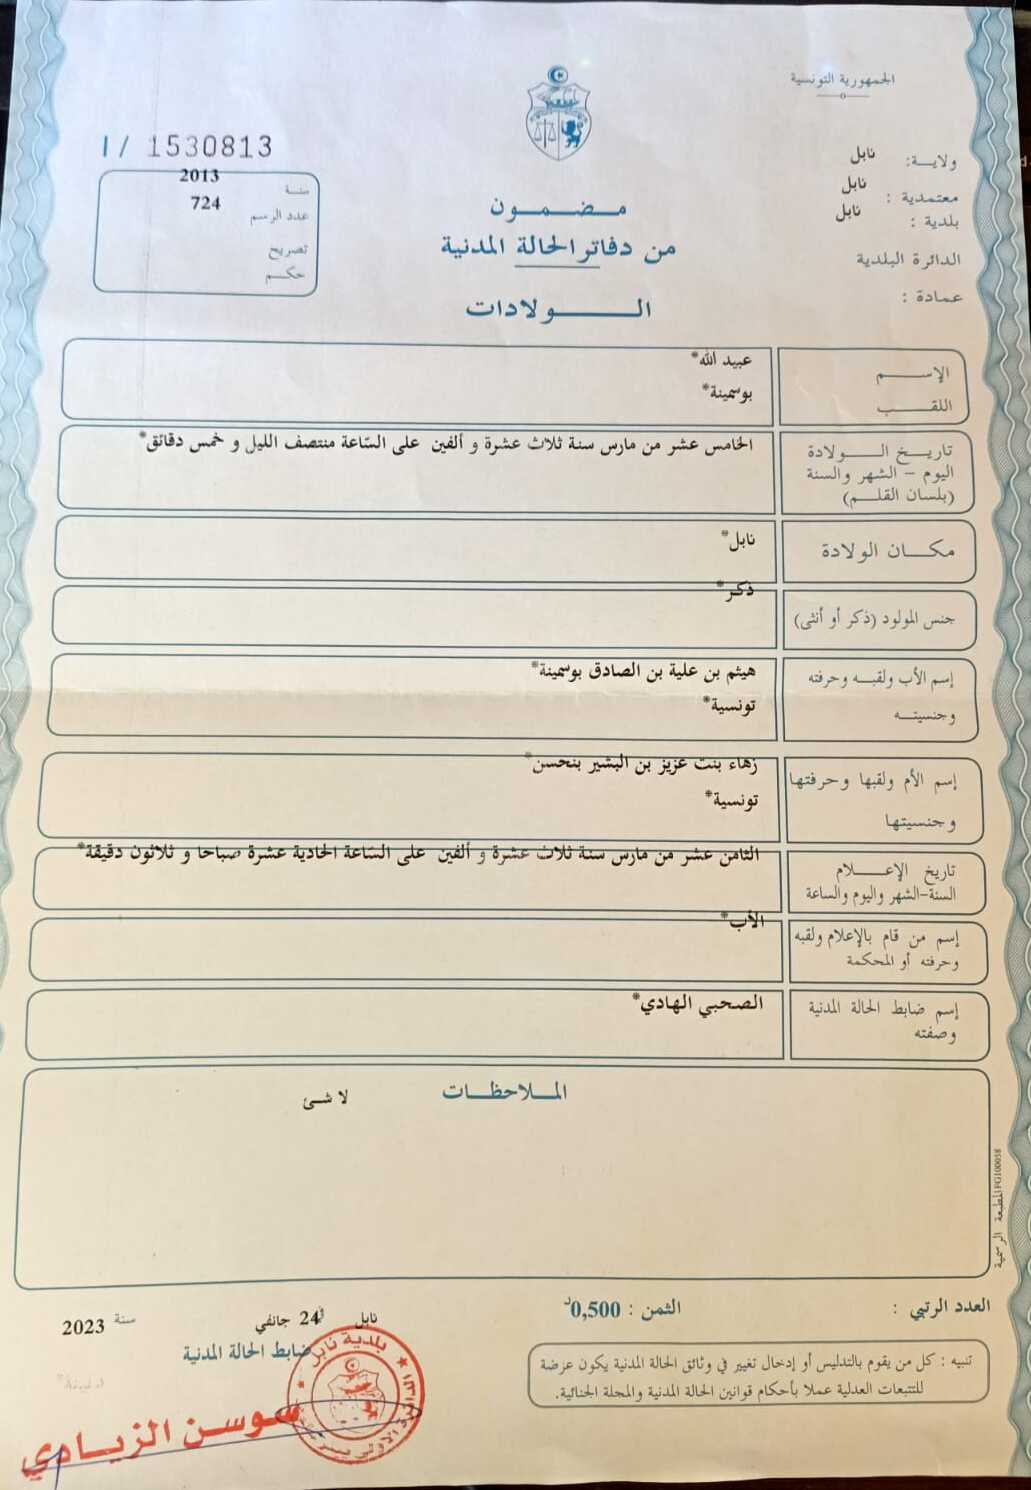 الجمهورية التونسية
ولايـــة: نابل
معتمدية : نابل
بلدية : نابل
الدائرة البلدية
عمادة :
I / 1530813
سنة 2013
عدد الرسم 724
تصريح
حكـــم
مـــضـــمـــون
من دفاتر الحالة المدنية
الـــــولادات
الإســـــم عبيد الله*
اللقـــــب بوسمينة*
تاريـــخ الـــــولادة الخامس عشر من مارس سنة ثلاث عشرة و ألفين على السّاعة منتصف الليل و خمس دقائق*
اليوم – الشهر والسنة
(بلسان القلـــم)
مكـــان الولادة نابل*
جنس المولود (ذكر أو أنثى) ذكر*
إسم الأب ولقبـــه وحرفته هيثم بن علية بن الصادق بوسمينة*
وجنسيتـــه تونسية*
إسم الأم ولقبها وحرفتها زهاء بنت عزيز بن البشير بنحسن*
وجنسيتها تونسية*
تاريخ الإعـــــلام الثامن عشر من مارس سنة ثلاث عشرة و ألفين على السّاعة الحادية عشرة صباحا و ثلاثون دقيقة*
السنة-الشهر واليوم والساعة
إسم من قام بالإعلام ولقبه الأب*
وحرفته أو المحكمة
إسم ضابط الحالة المدنية الصحبي الهادي*
وصفته
المـــلاحظـــات
لا شئ
المطبعة الرسمية IFG100058
العدد الرتبي :
الثمن : 0,500د
تنبيه : كل من يقوم بالتدليس أو إدخال تغيير في وثائق الحالة المدنية يكون عرضة
للتتبعات العدلية عملا بأحكام قوانين الحالة المدنية والمجلة الجنائية.
نابل في 24 جانفي سنة 2023
ضابط الحالة المدنية
بلدية نابل
سوسن الزيـــادي